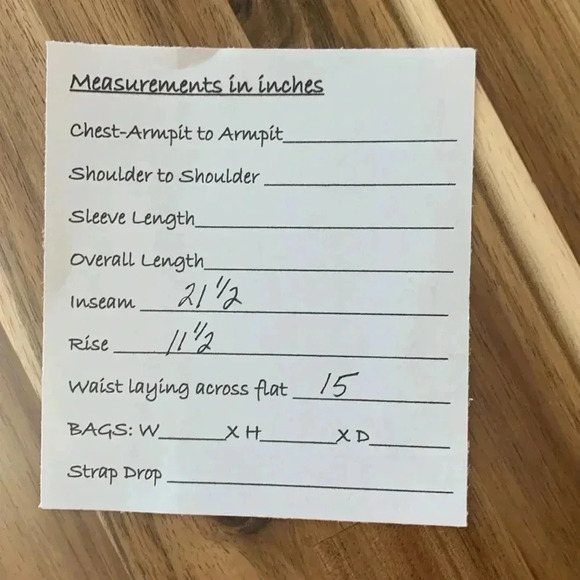 Measurements in inches
Chest-Armpit to Armpit
Shoulder to Shoulder
Sleeve Length
Overall Length
Inseam 21 1/2
Rise 11 1/2
Waist laying across flat 15
BAGS: W X H X D
Strap Drop